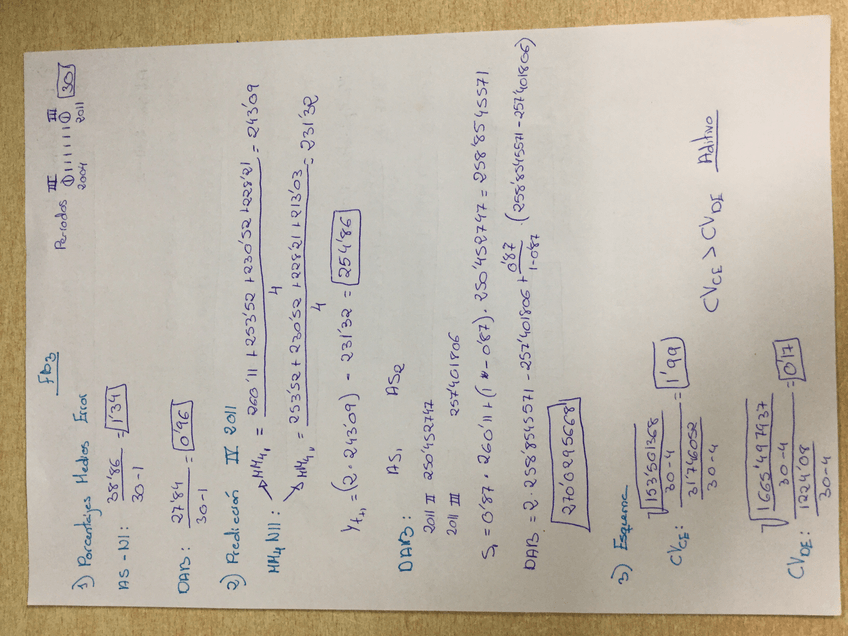 Periodos III III 30
2004 2011
Fb3
1) Porcentajes Medios Error
AS-NI: 38'86 / 30-1 = 1'34
DAB: 27'84 / 30-1 = 0'96
2) Predicción IV 2011
MM4 NII: MM4, = 260'11 + 253'52 + 230'52 + 228'21 / 4 = 243'09
MM4, = 253'52 + 230'52 + 228'21 + 213'03 / 4 = 231'32
= (2 · 243'09) - 231'32 = 254'86
DAB: AS1 AS2
2011 II 250'452747
2011 III 257'401806
S1 = 0'87 · 260'11 + (1 - 0'87) · 250'452747 = 258'8545571
DAB = 2 · 258'8545571 - 257'401806 + 0'87 / 1-0'87 · (258'8545571 - 257'401806)
270'0295668
3) Esquema
CV CE: √ 153'501368 / 30-4 / 31'746052 / 30-4 = 1'99
CV CE > CV DE Aditivo
CV DE: √ 1665'497937 / 30-4 / 1224'08 / 30-4 = 0'17